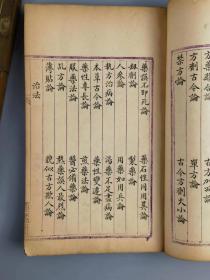 方劑古今論　單方論
禁方論　古今方劑大小論
藥誤不即死論　藥石性同用異論
劫劑論　製藥論
人參論　用藥如用兵論
執方治病論　湯藥不足盡病論
本草古今論　藥性變遷論
藥性專長論　煎藥法論
服藥法論　醫必備藥論
乩方論　熱藥誤人最烈論
薄貼論　貌似古方欺人論
治法